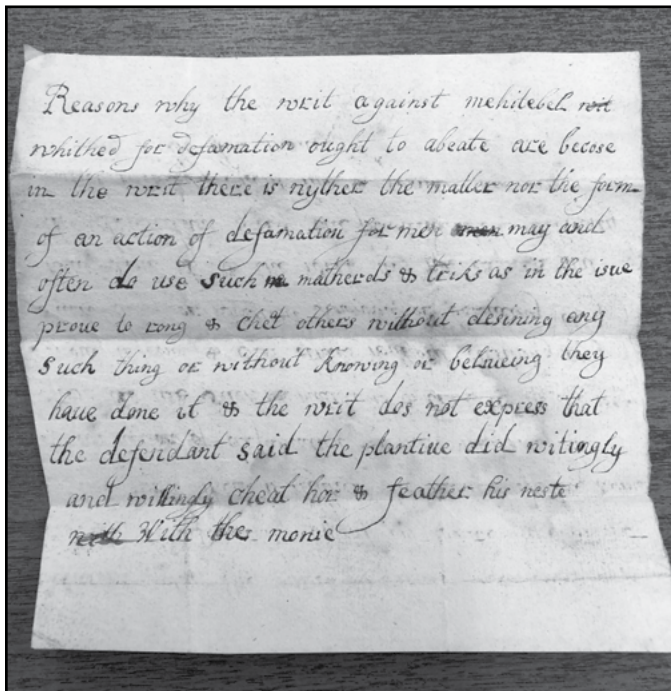 Reasons why the writ against mehitebel
whithed for defamation ought to abeate are becose
in the writ there is nyther the matter nor the form
of an action of defamation for men may and
often do use such matherds & triks as in the isue
prove to rong & chet others without desining any
such thing or without knowing or beliueing they
have done it & the writ dos not express that
the defendant said the plantiue did witingly
and willingly cheat hor & feather his neste
With ther monie